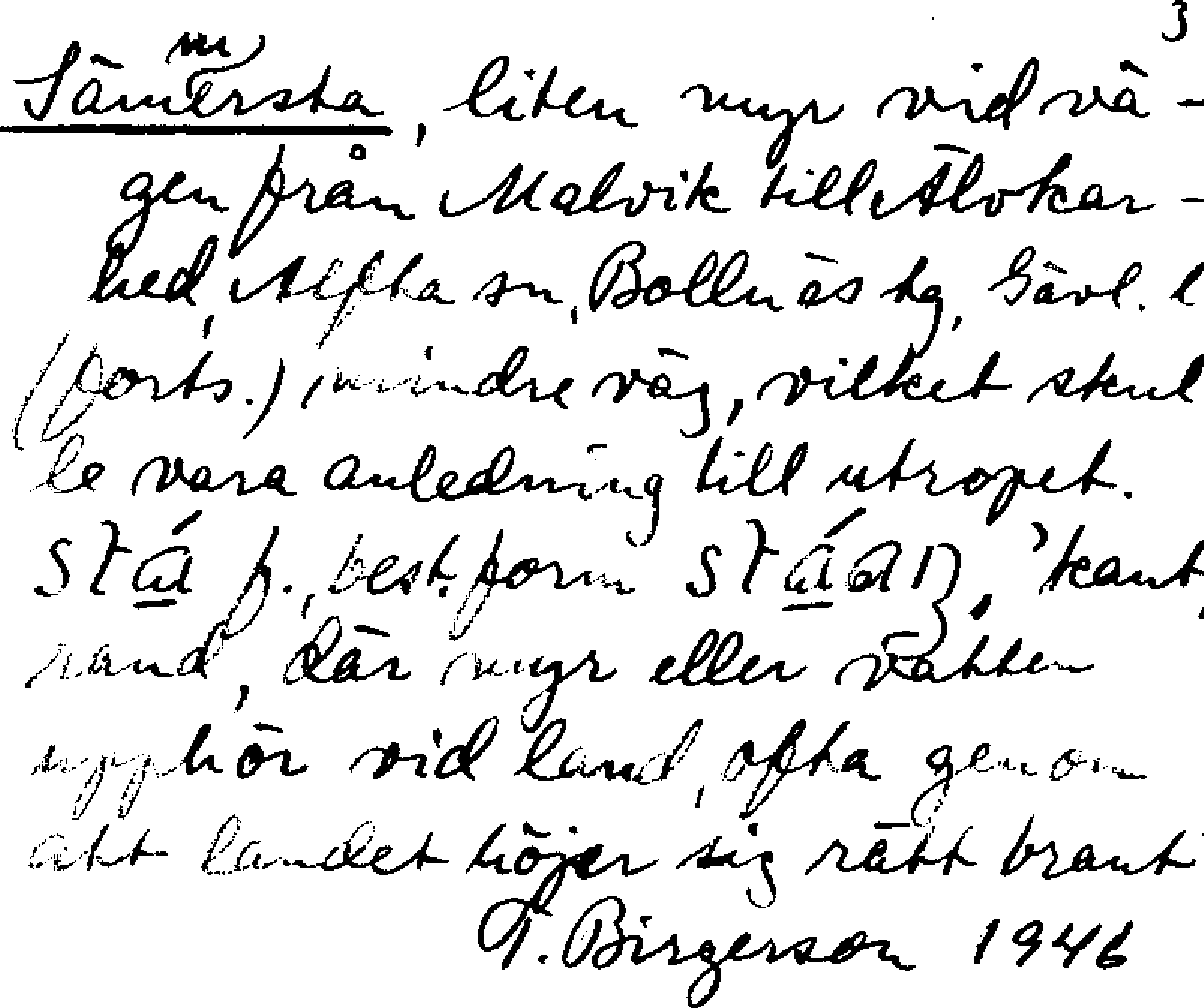 3
m)
Sämersta, liten myr vid vä-
gen från Malvik till Älvkar-
hed, Alfta sn, Bollnäs tg, Gävl. l
(forts.) mindre väg, vilket skul
le vara anledning till utropet.
stá f., best. form stáan, 'kant,
rand, där myr eller vatten
upphör vid land, ofta genom
att landet höjer sig rätt brant
T. Birgerson 1946